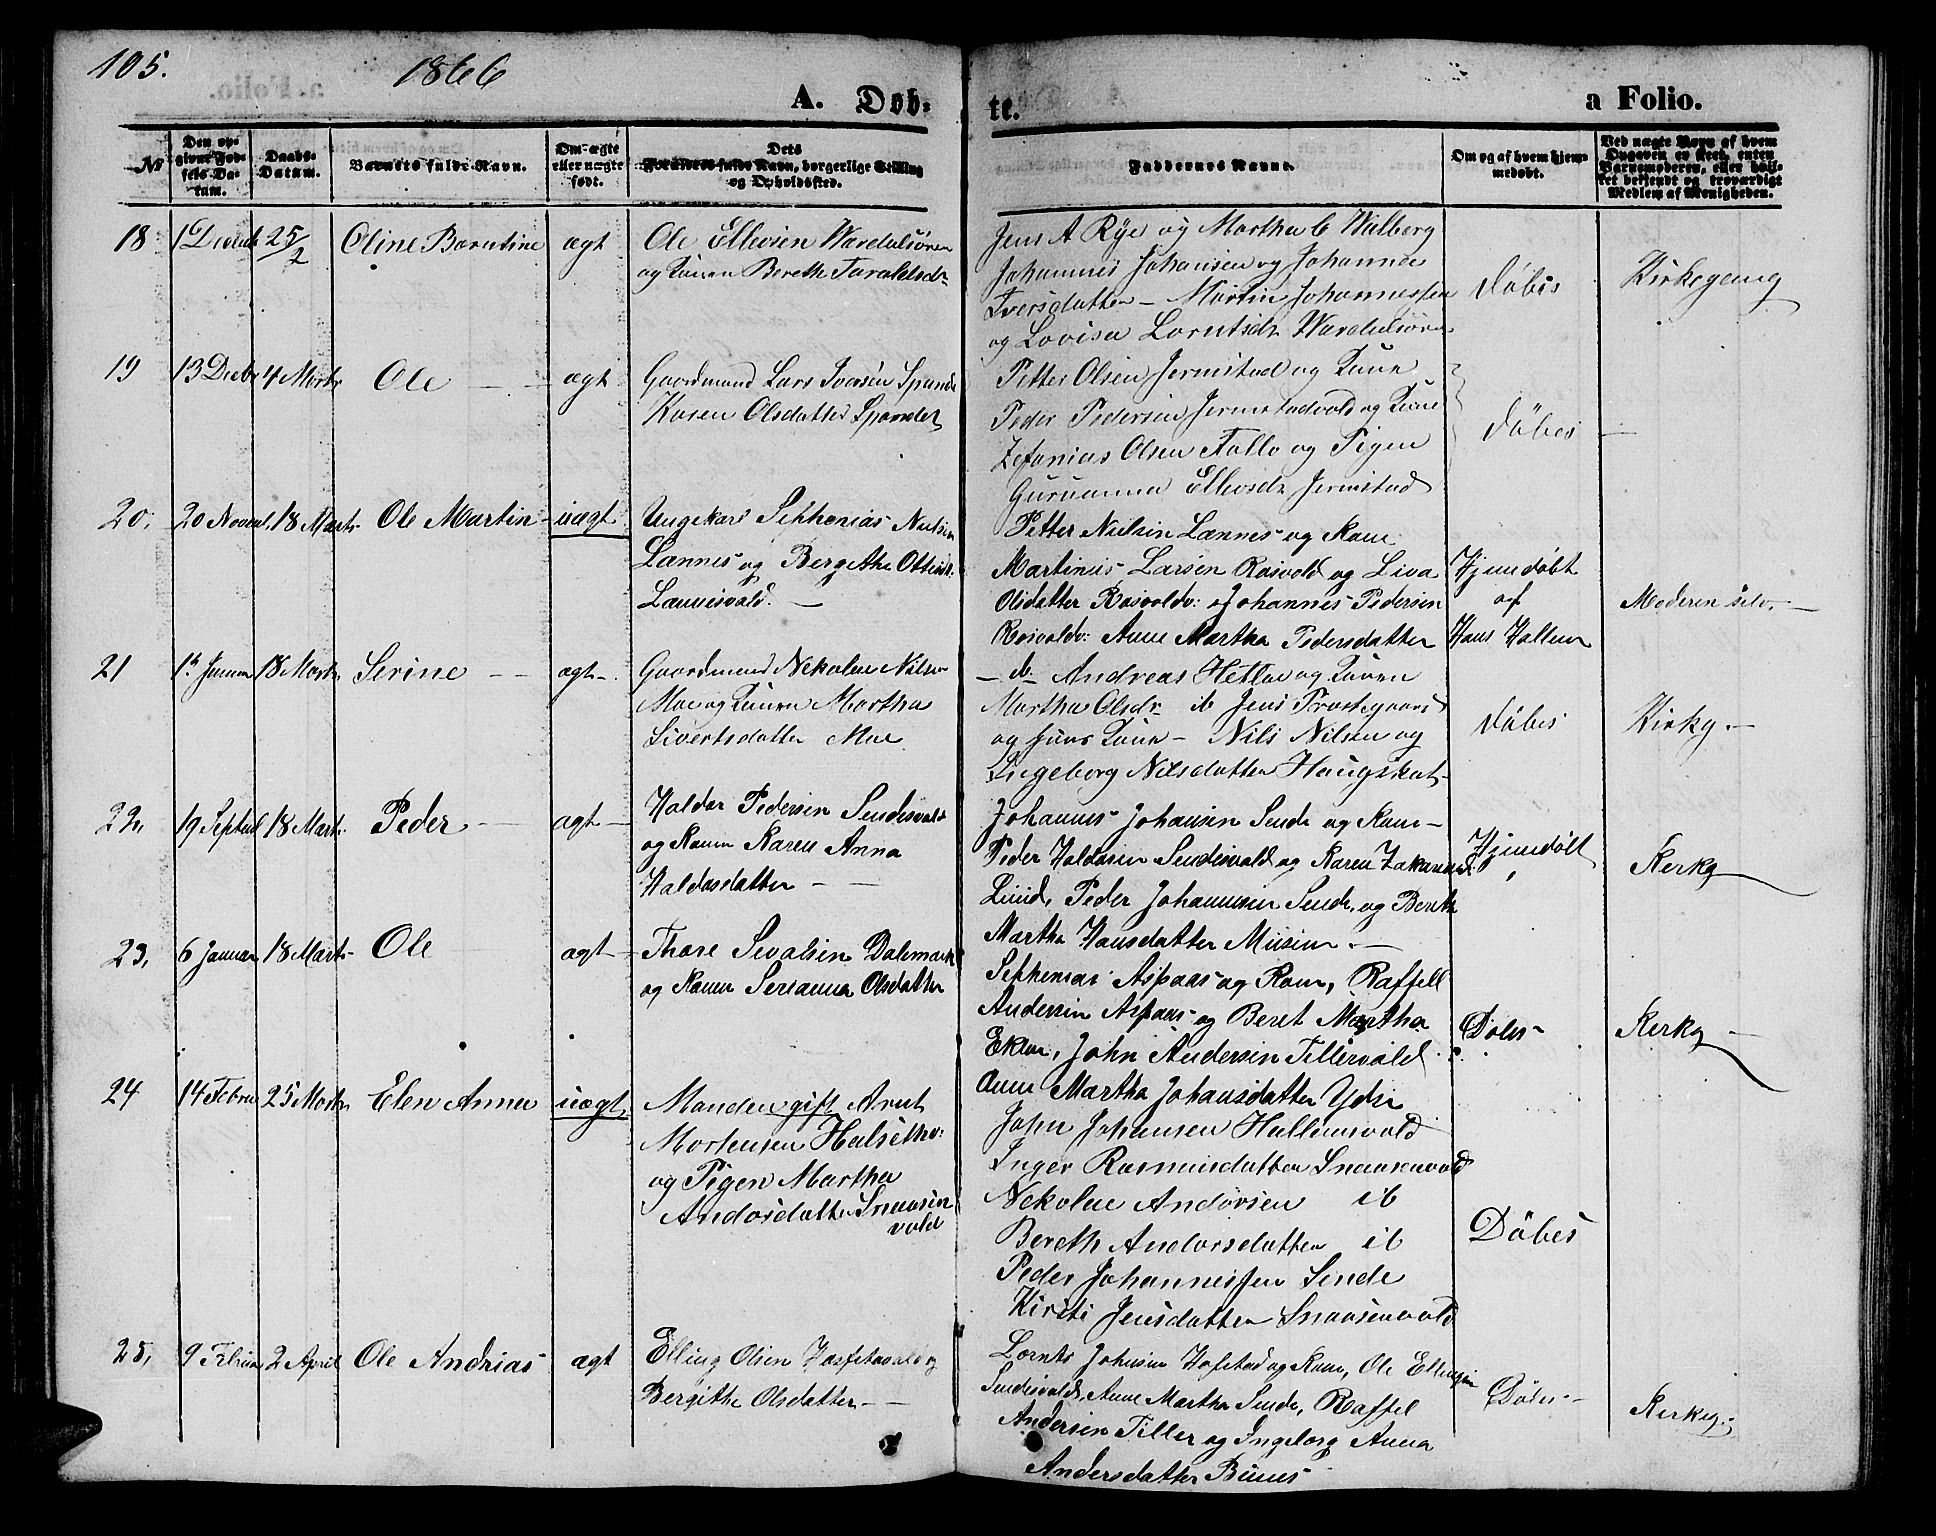 105. 1866
A. Døb- te. a Folio.
№
Den opgivne Fødsels Datum.
Daabs-Datum.
Barnets fulde Navn.
Om ægte eller uægte født.
Dets Forældres fulde Navn, borgerlige Stilling og Opholdssted.
Faddernes Navne.
Om og af hvem hjemmedøbt.
Ved uægte Børn af hvem Opgaven er skeet, enten Barnemoderen, eller hvilket bekjendt og troværdigt Medlem af Menigheden.
18 1 Decemb 25/2 Oline Berntine ægt Ole Ellevsen Wardalsøren
og Konen Bereth Taraldsdr
Jens A Rÿe og Martha C Walberg
Johannes Johansen og Johanna
Iversdatter – Martin Johannessen
og Lovisa Lorntsdr Wardalsøren
Døbes Kirkegang
19 13 Decbr 4 Marts Ole ægt Gaardmand Lars Ivarsen Spande
Karen Olsdatter Spandet
Petter Olsen Jermstad og Kone
Peder Pedersen Jermstadvald og Kone
Zefanias Olsen Fallo og Pigen
Guruanna Ellevsdr Jermstad
Døbes –
20. 20 Novemb. 18 Marts Ole Martin uægt Ungekarl Sephanias Nielsen
Lannes og Bergithe Ottesdr.
Lannesvald. –
Petter Nielsen Lannes og Kone
Martinus Larsen Rosvold og Liva
Olsdatter Rosvoldv: og Johannes Pedersen
Rosvoldv: Anne Martha Pedersdatter
Hjemdøbt
af
Hans Hallem
Moderen selv. –
21 1ste Januar 18 Marts Serine ægt –. Gaardmand Nekolai Nilsen
Moe og Konen Martha
Sivertsdatter Moe
– ib – Andreas Hetloe og Konen
Martha Olsdr ib Jens Prestegaard
og hans Kone – Nils Nilsen og
Ingeborg Nilsdatter Haugskot –
Døbes Kirkg –
22. 19 Septemb 18 Marts. Peder – ægt – Haldor Pedersen Sendesvald
og Konen Karen Anna
Haldosdatter – –
Johannes Johansen Sende og Kone –
Peder Haldosen Sendesvald og Karen Zakariasd.
Lund, Peder Johannesen Sende, og Bereth
Martha Hansdatter Musum. –
Hjemdøbt Kerkg
23. 6 Januar 18 Marts Ole ægt – Thore Sivalsen Dalemark
og Konen Serianna Olsdatter
Sephenias Aspaas og Kone, Raffell
Andersen Aspaas og Beret Martha
Ekloe, John Andersen Tillervald
Anne Martha Johansdatter Ydse
Døbes – Kerkg –
24 14 Februar 25 Marts Elen Anna uægt Manden gift Arnt
Mortensen Halsethv:
og Pigen Martha
Andorsdatter Snausen
vald
John Johansen Hallemsvald
Inger Rasmusdatter Snausenvald
Nekolai Andorsen ib
Bereth Andorsdatter ib
Peder Johannessen Sende
Kirsti Jensdatter Snausenvald
Døbes
25. 9 Februar 2 April Ole Andrias ægt Elling Olsen Hofstadvald og
Bergithe Olsdatter – –
Lornts Johnsen Hofstad og Kone, Ole Ellingsen
Sendesvald, Anne Martha Sende, Raffel
Andersen Tiller og Ingeborg Anna
Andersdatter Bunes
Døbes – Kerkeg.